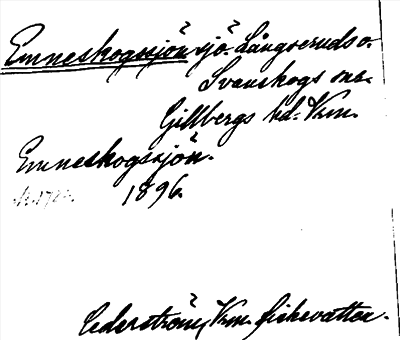 Emneskogssjön, sjö. Långseruds o.
Svanskogs snr.
Gillbergs hd. Vrm.
Emneskogssjön.
1896.
Cederström, Vrm. fiskevatten.